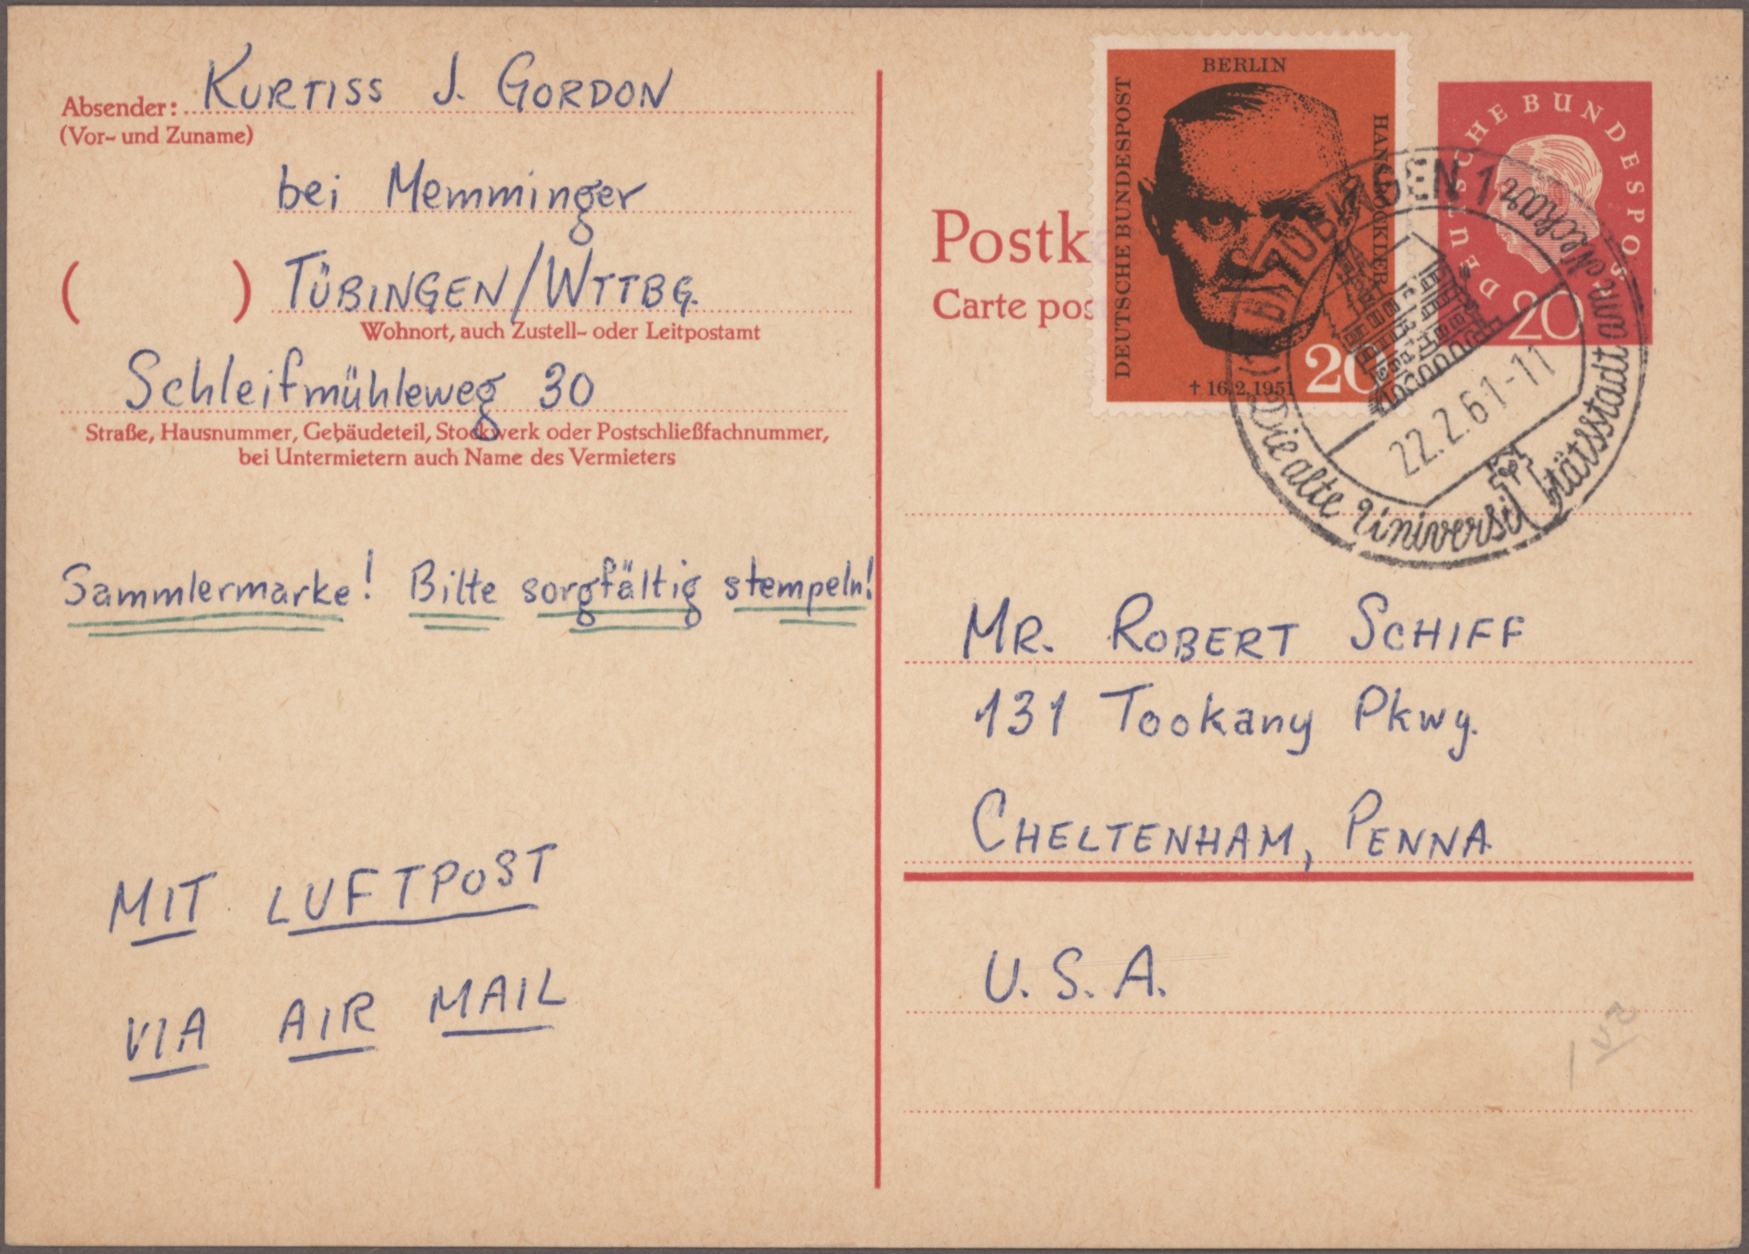 Absender: KURTISS J. GORDON
(Vor- und Zuname)
bei Memminger
( ) TÜBINGEN/WTTBG.
Wohnort, auch Zustell- oder Leitpostamt
Schleifmühleweg 30
Straße, Hausnummer, Gebäudeteil, Stockwerk oder Postschließfachnummer,
bei Untermietern auch Name des Vermieters
Sammlermarke! Bitte sorgfältig stempeln!
MIT LUFTPOST
VIA AIR MAIL
Postk
Carte pos
BERLIN
DEUTSCHE BUNDESPOST
HANS BÖCKLER
† 16.2.1951
20
DEUTSCHE BUNDESPOST
20
TÜBINGEN 1
22.2.61-11
Die alte Universitätsstadt am Neckar
MR. ROBERT SCHIFF
131 Tookany Pkwy.
CHELTENHAM, PENNA
U.S.A.